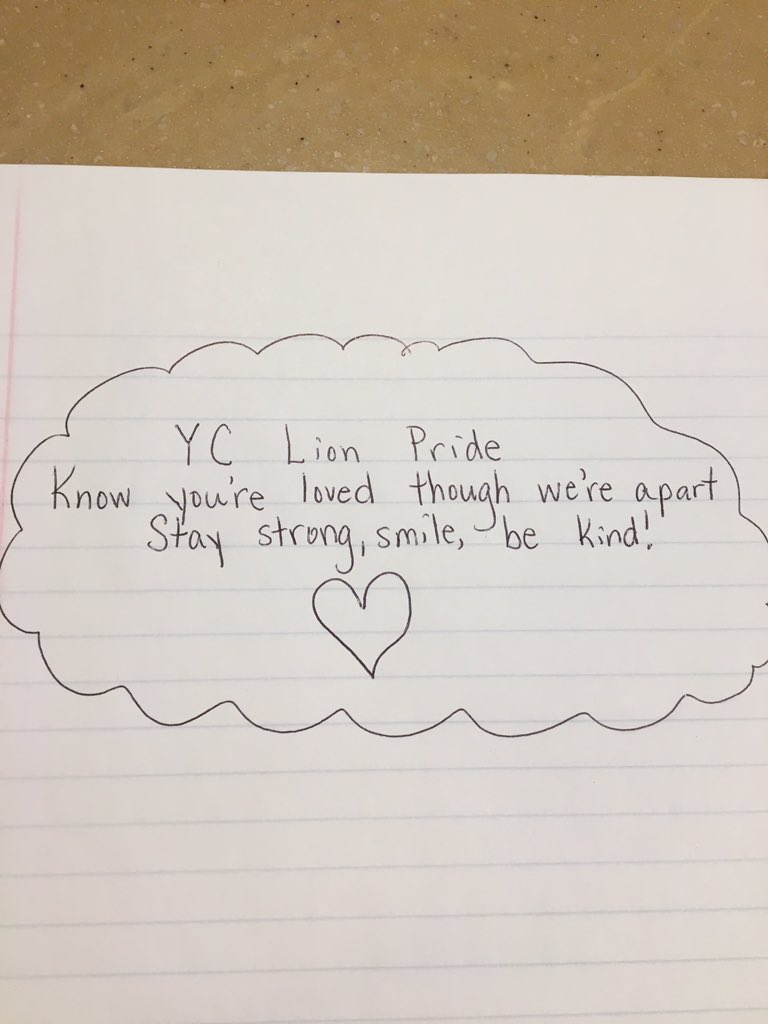 YC Lion Pride
Know you're loved though we're apart
Stay strong, smile, be kind!